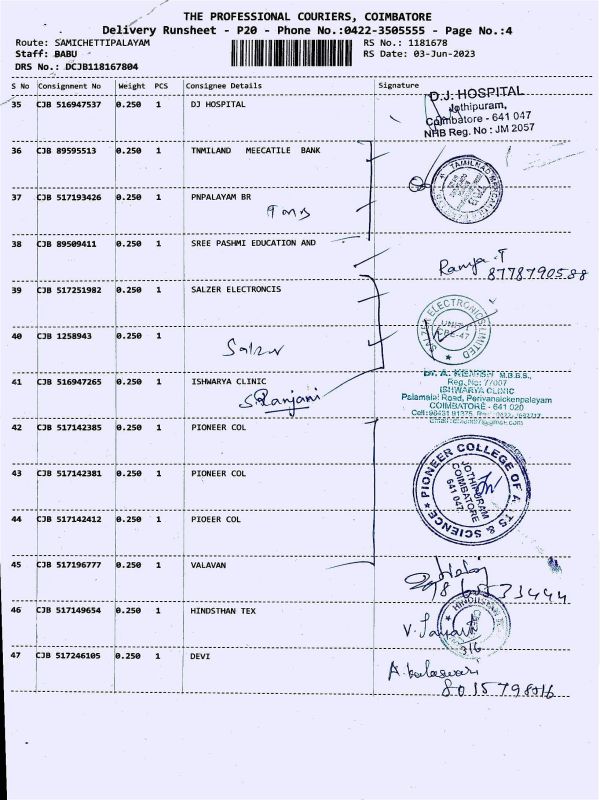 THE PROFESSIONAL COURIERS, COIMBATORE
Delivery Runsheet - P20 - Phone No.:0422-3505555 - Page No.:4
Route: SAMICHETTIPALAYAM RS No.: 1181678
Staff: BABU RS Date: 03-Jun-2023
DRS No.: DCJB118167804
S No Consignment No Weight PCS Consignee Details Signature
35 CJB 516947537 0.250 1 DJ HOSPITAL
D.J. HOSPITAL
Jothipuram,
Coimbatore - 641 047
NHB Reg. No : JM 2057
36 CJB 89595513 0.250 1 TNMILAND MEECATILE BANK
37 CJB 517193426 0.250 1 PNPALAYAM BR
38 CJB 89509411 0.250 1 SREE PASHMI EDUCATION AND
Ramya.T
8778790588
39 CJB 517251982 0.250 1 SALZER ELECTRONCIS
SALZER ELECTRONICS LIMITED
40 CJB 1258943 0.250 1
Salzer
41 CJB 516947265 0.250 1 ISHWARYA CLINIC
S Ranjani
M.B.B.S.,
Reg.No: 77007
ISHWARYA CLINIC
Palamalai Road, Periyanaickenpalayam
COIMBATORE - 641 020
42 CJB 517142385 0.250 1 PIONEER COL
43 CJB 517142381 0.250 1 PIONEER COL
44 CJB 517142412 0.250 1 PIOEER COL
PIONEER COLLEGE OF ARTS & SCIENCE
JOTHIPURAM
COIMBATORE
641 047
45 CJB 517196777 0.250 1 VALAVAN
46 CJB 517149654 0.250 1 HINDSTHAN TEX
316
47 CJB 517246105 0.250 1 DEVI